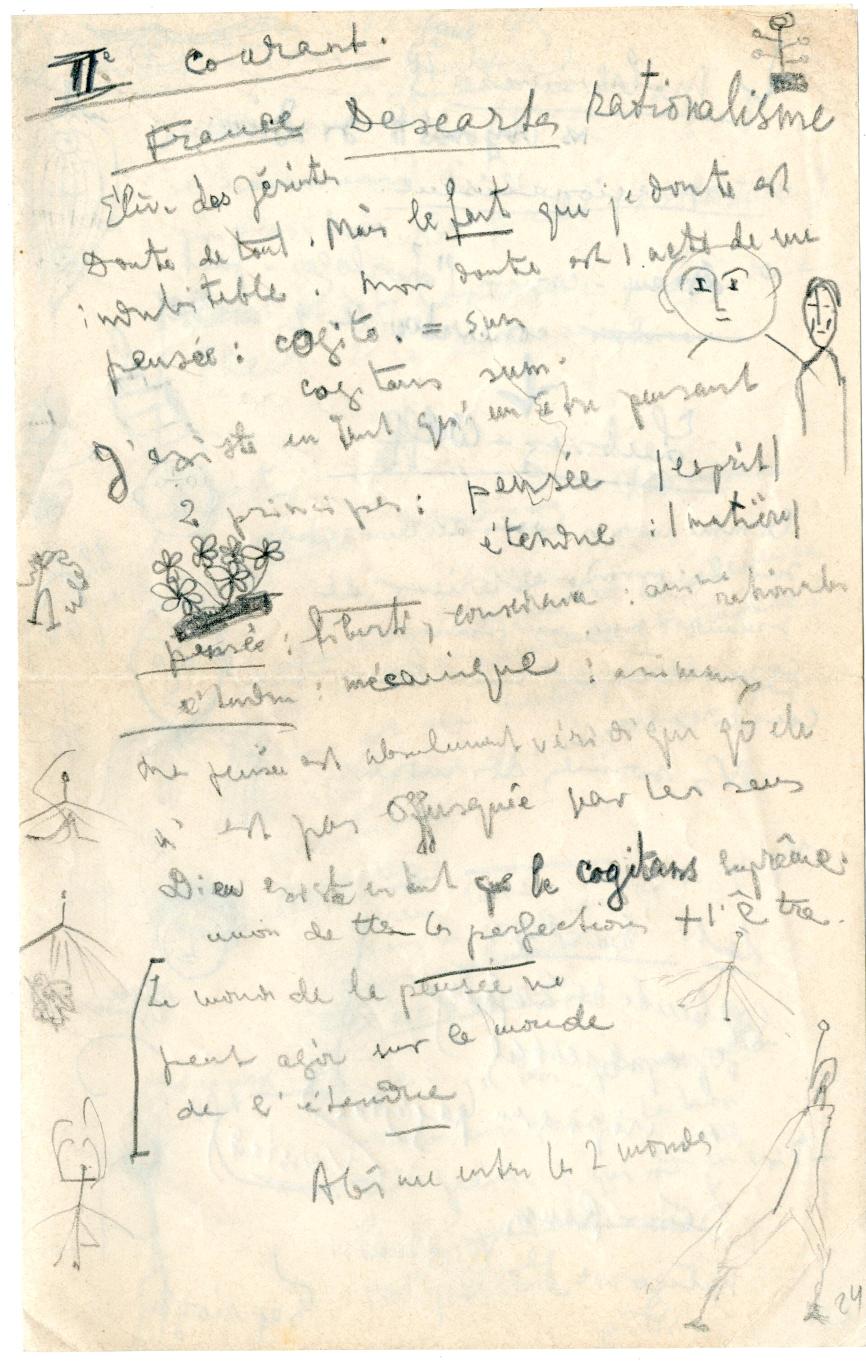 IIe courant.
France Descartes rationalisme
Élève des Jésuites
Doute de tout. Mais le fait que je doute est
indubitable. Mon doute est l'acte de ma
pensée : cogito. = sum
cogitans sum.
J'existe en tant qu'un être pensant
2 principes : pensée |esprit|
étendue : |matière|
pensée : liberté, conscience : âme rationnelle
étendue : mécanique : animaux
La pensée est absolument véridique qd elle
n'est pas offusquée par les sens
Dieu existe en tant que le cogitans suprême.
union de ttes les perfections + l'Être.
Le monde de la pensée ne
peut agir sur le monde
de l'étendue
Abîme entre les 2 mondes
24